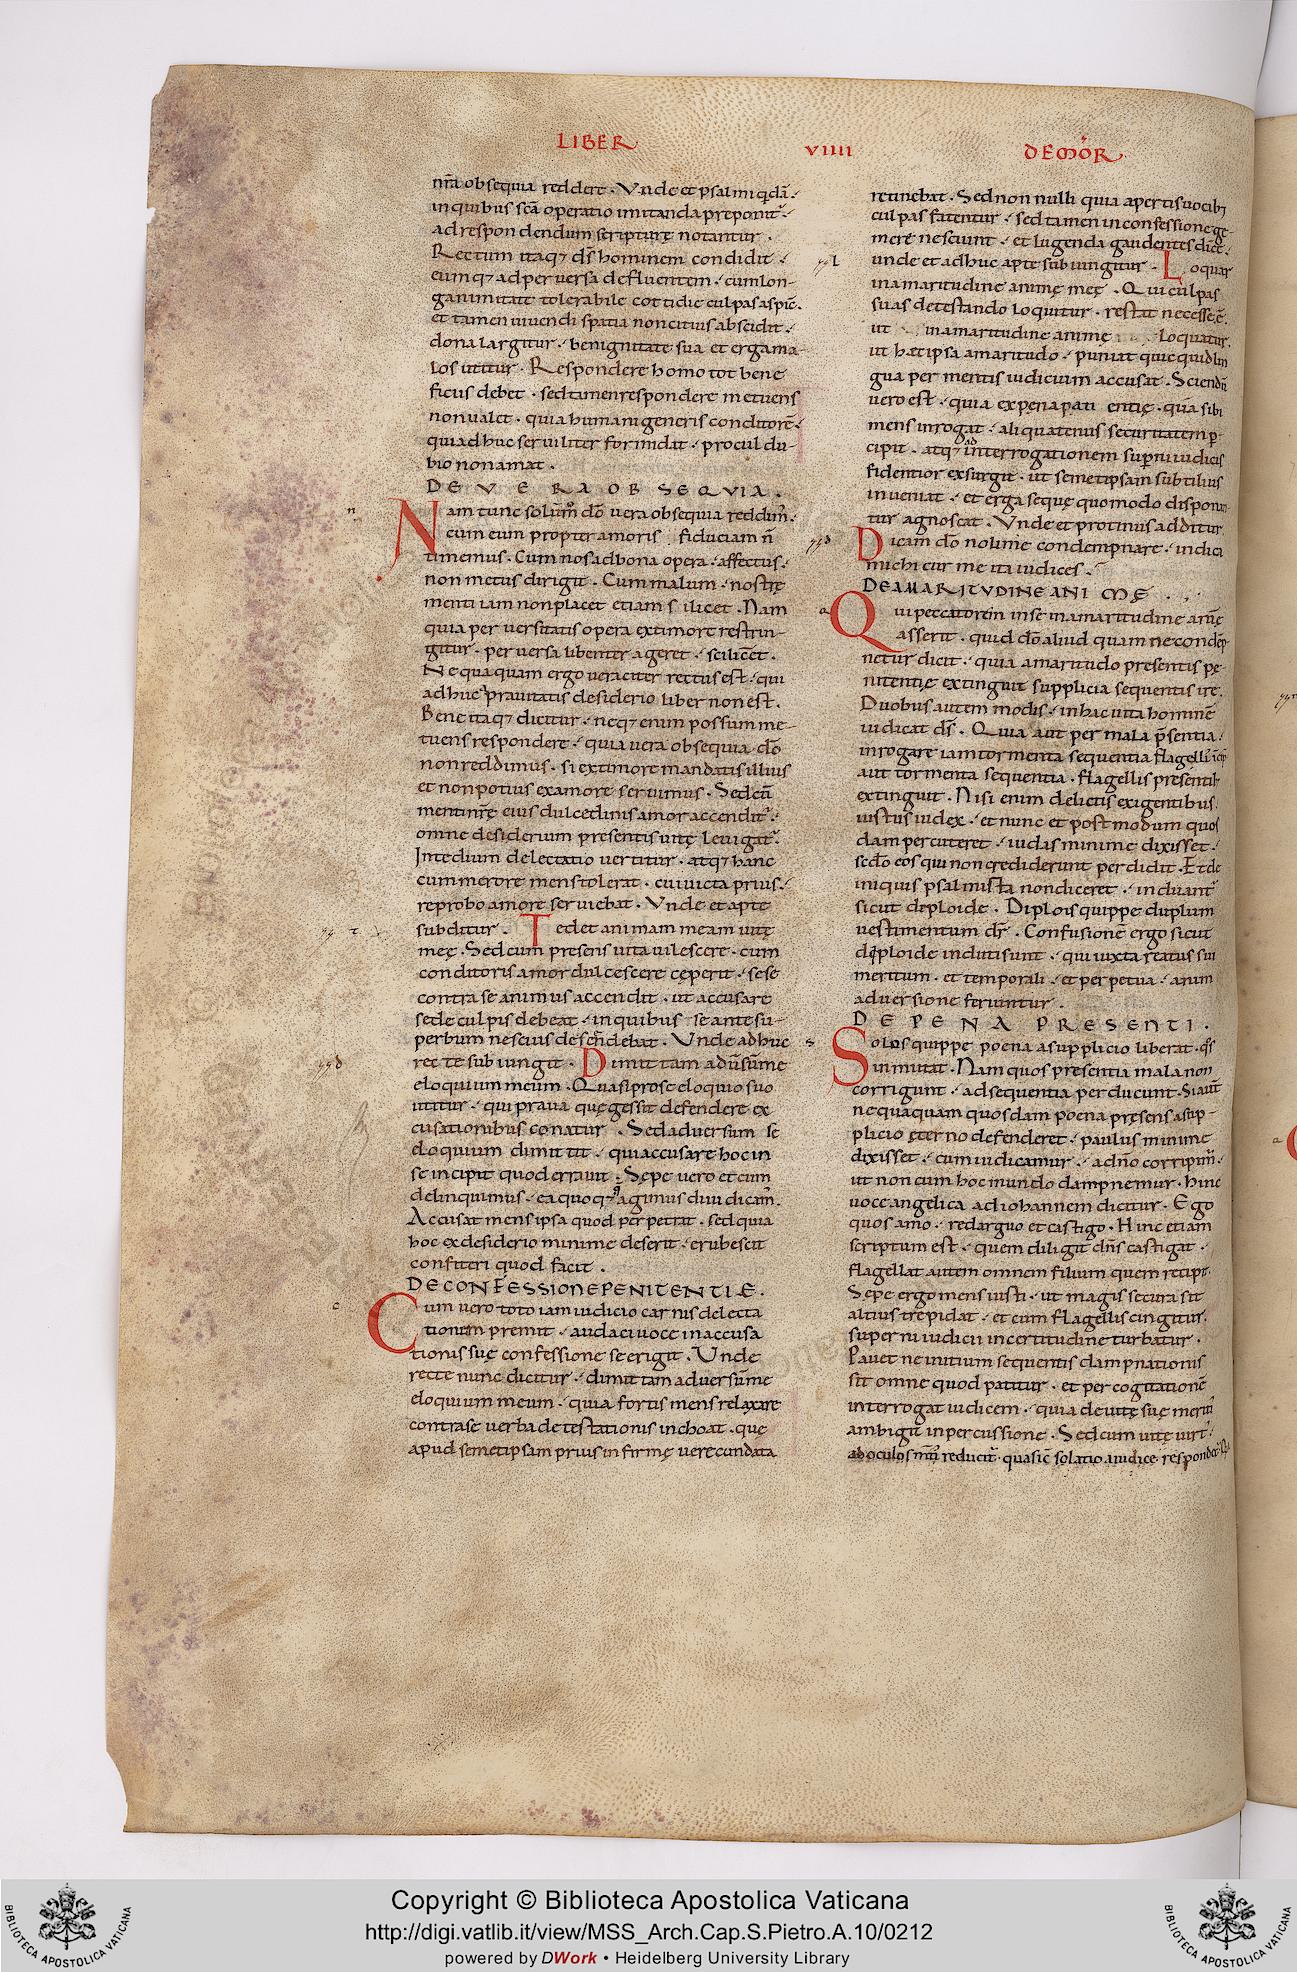 LIBER
VIIII
DEMOR̄
nr̄a obsequia reddere. Vnde et psalmi q̇dā.
in quibus sc̄a operatio imitanda preponit̄.
ad respondendum scripturę notantur.
Rectum itaq; ds̄ hominem condidit.
eumq; ad perversa defluentem. cum lon-
ganimitate tolerabile cottidie culpas aspic̄.
et tamen uiuendi spatia non citius abscidit.
dona largitur. benignitate sua et erga ma-
los utitur. Respondere homo tot bene
ficiis debet. sed tamen respondere metuens
non ualet. quia humani generis conditorē.
qui adhuc seruiliter formidat. procul du-
bio non amat.
DE VERA OBSEQVIA.
Nam tunc solum dō uera obsequia reddim̄.
cum eum propter amoris fiduciam n̄
timemus. Cum nos ad bona opera. affectus.
non metus dirigit. Cum malum. nostrę
menti iam non placet etiam si licet. Nam
quia per uersitatis opera ex timore restrin-
gitur. per uersa libenter ageret. si licet.
Nequaquam ergo ueraciter rectus est. qui
adhuc prauitatis desiderio liber non est.
Bene itaq; dicitur. neq; enim possum me-
tuens respondere. quia uera obsequia dō
non reddimus. si ex timore mandatis illius
et non potius ex amore seruimus. Sed cū
menti nr̄ę eius dulcedinis amor accendit̄.
omne desiderium presentis uitę leuigat̄.
In tedium delectatio uertitur. atq; hanc
cum merore mens tolerat. cui uicta prius.
reprobo amore seruiebat. Vnde et apte
subditur. Tedet animam meam uitę
meę. Sed cum presens uita uilescere. cum
conditoris amor dulcescere cęperit. sese
contra se animus accendit. ut accusare
se de culpis debeat. in quibus se ante su-
perbum nescius defendebat. Vnde adhuc
recte subiungit. Dimittam aduersūme
eloquium meum. Quasi pro se eloquio suo
utitur. qui praua quę gessit defendere ex
cusationibus conatur. Sed aduersum se
eloquium dimittit. qui accusare hoc in
se incipit quod errauit. Sepe uero et cum
delinquimus. ea quoq; q̄ agimus diiudicam̄.
Accusat mens ipsa quod perpetrat. sed quia
hoc ex desiderio minime deserit. erubescit
confiteri quod facit.
DE CONFESSIONE PENITENTIĘ.
Cum uero toto iam iudicio carnis delecta
tionem premit. audaci uoce in accusa
tionis suę confessione se erigit. Unde
recte nunc dicitur. dimittam aduersūme
eloquium meum. quia fortis mens relaxare
contra se uerba detestationis inchoat. quę
apud semetipsam prius infirmę uerecundata
retinebat. Sed non nulli quia apertis uocib;
culpas fatentur. sed tamen in confessione ge-
mere nesciunt. et lugenda gaudentes dicē.
unde et adhuc apte subiungitur. Loquar
in amaritudine animę meę. Qui culpas
suas detestando loquitur. restat necesse ē.
ut in amaritudine animę loquatur.
ut hec ipsa amaritudo. puniat quicquid lin
gua per mentis iudicium accusat. Sciendū
uero est. quia ex pena pati entię. quā sibi
mens inrogat. aliquatenus securitatem p̄-
cipit. atq; ad interrogationem sup̄ni iudicis
fidentior exsurgit. ut semetipsam subtilius
inueniat. et erga se quę quomodo disponun
tur agnoscat. Vnde et protinus additur.
Dicam dō noli me condempnare. indica
michi cur me ita iudices.
DE AMARITVDINE ANIMĘ.
Qui peccatorem in se in amaritudine anīę
asserit. quid dō aliud quam ne condēp
netur dicit. quia amaritudo presentis pę-
nitentię extinguit supplicia sequentis irę.
Duobus autem modis. in hac uita hominē
iudicat ds̄. Quia aut per mala p̄sentia.
inrogare iam tormenta sequentia
aut tormenta sequentia. flagellis presentib;
extinguit. Nisi enim delictis exigentibus.
iustus iudex. et nunc et post modum quos
dam percuteret. iudas minime dixisset.
sec̄do eos qui non crediderunt perdidit. Et de
iniquis psalmista non diceret. induant̄
sicut diploide. Diplois quippe duplum
uestimentum dr̄. Confusionē ergo sicut
diploide induti sunt. qui iuxta reatus sui
meritum. et temporali. et perpetua. anim
aduersione feriuntur.
DE PENA PRESENTI.
Solos quippe poena a supplicio liberat. q̄s
inmutat. Nam quos presentia mala non
corrigunt. ad sequentia perducunt. Si aut̄
nequaquam quosdam poena pręsens a sup-
plicio ęterno defenderet. paulus minime
dixisset. cum iudicamur. a dn̄o corripim̄.
ut non cum hoc mundo dampnemur. Hinc
uoce angelica ad iohannem dicitur. Ego
quos amo. redarguo et castigo. Hinc etiam
scriptum est. quem diligit dn̄s castigat.
flagellat autem omnem filium quem recipit.
Sepe ergo mens iusti. ut magis secura sit
altius trepidat. et cum flagellis cingitur.
superni iudicii incertitudine turbatur.
Pauet ne initium sequentis dampnationis
sit omne quod patitur. et per cogitationē
interrogat iudicem. quia de uitę suę merit̄
ambigit in percussione. Sed cum uitę uirt̄
ad oculos mentis reducit̄. quasi c̄solatio a iudice
Copyright © Biblioteca Apostolica Vaticana
http://digi.vatlib.it/view/MSS_Arch.Cap.S.Pietro.A.10/0212
powered by DWork • Heidelberg University Library
BIBLIOTECA APOSTOLICA VATICANA
BIBLIOTECA APOSTOLICA VATICANA